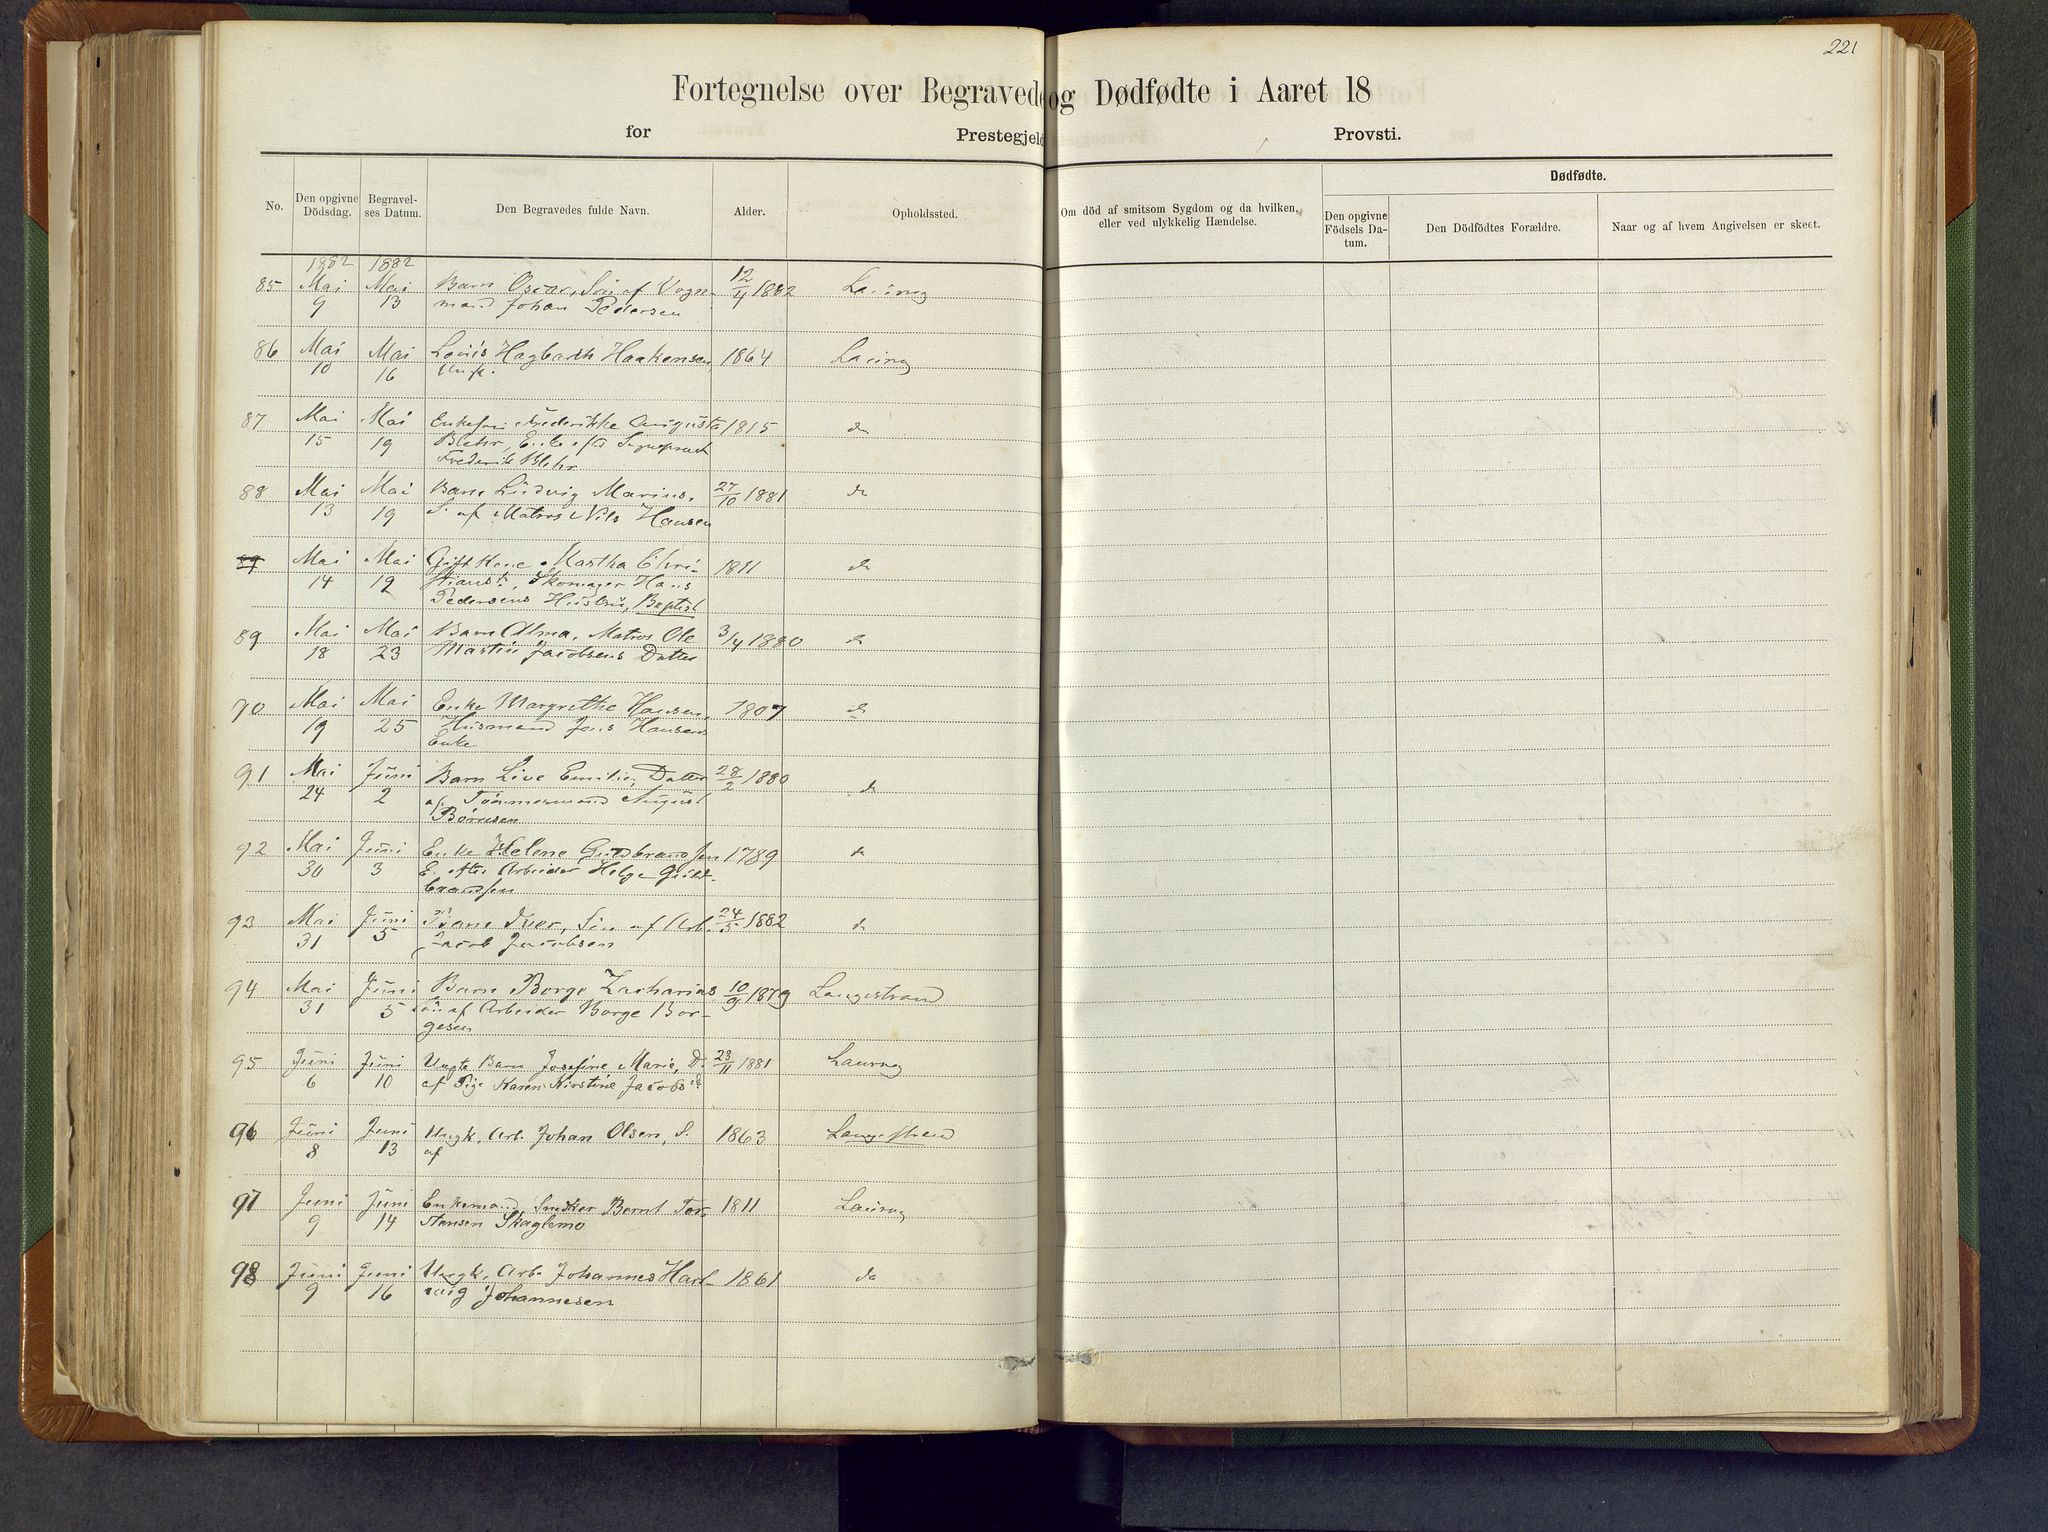 221
Fortegnelse over Begravede og Dødfødte i Aaret 18
for Prestegjeld Provsti.
No. Den opgivne Dödsdag. Begravelses Datum. Den Begravedes fulde Navn. Alder. Opholdssted. Om död af smitsom Sygdom og da hvilken, eller ved ulykkelig Hændelse. Dødfødte. Den opgivne Födsels Datum. Den Dödfödtes Forældre. Naar og af hvem Angivelsen er skeet.
1882 1882
85 Mai Mai Barn Oscar, Sön af Vogn- 12/4 1882 Laurvig
9 13 mand Johan Pedersen
86 Mai Mai Louis Hagbarth Haakensen, 1864 Laurvig
10 16 Ungk.
87 Mai Mai Enkefru Frederikke Augusta 1815 do
15 19 Blehr, Enke efter Sogneprest
Frederik Blehr
88 Mai Mai Barn Ludvig Marius, 27/10 1881 do
13 19 S. af Matros Nils Hansen
89 Mai Mai Gift Kone Martha Chri- 1811 do
14 19 stianst., Skomager Hans
Pedersens Hustru, Baptist
89 Mai Mai Barn Alma, Matros Ole 3/4 1880 do
18 23 Martin Jacobsens Datter
90 Mai Mai Enke Margrethe Hansen, 1807 do
19 25 Husmand Jens Hansens
Enke
91 Mai Juni Barn Live Emilie, Datter 28/2 1880 do
24 2 af Tömmermand August
Börresen
92 Mai Juni Enke Helene Guldbrandsen 1789 do
30 3 E. efter Arbeider Helge Guld-
brandsen
93 Mai Juni Barn Iver, Sön af Arb. 24/5 1882 do
31 5 Jacob Jacobsen
94 Mai Juni Barn Borge Zacharias 10/9 1879 Langestrand
31 5 Sön af Arbeider Borge Bor-
gesen
95 Juni Juni Uægte Barn Josefine Marie, D. 23/11 1881 Laurvig
6 10 af Pige Karen Kirstine Jacobsd.
96 Juni Juni Ungk. Arb. Johan Olsen, S. 1863 Langestrand
8 13 af
97 Juni Juni Enkemand, Snedker Bernt Tor- 1811 Laurvig
9 14 stensen Skaglemo
98 Juni Juni Ungk. Arb. Johannes Hart- 1861 do
9 16 vig Johannesen